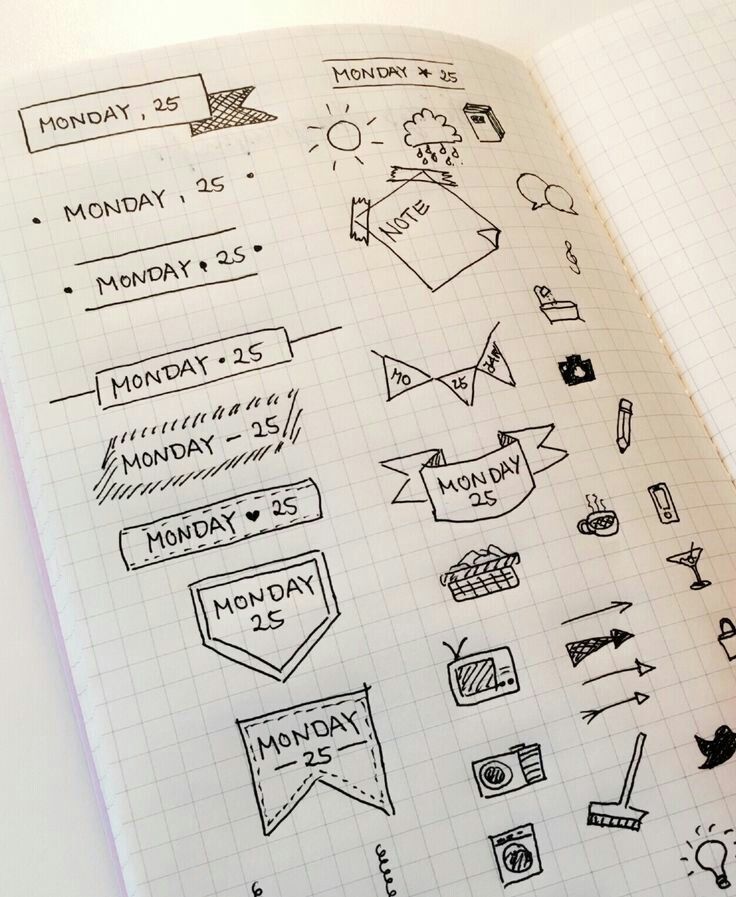 MONDAY, 25
• MONDAY, 25 •
• MONDAY • 25 •
MONDAY • 25
MONDAY – 25
MONDAY ♥ 25
MONDAY
25
MONDAY
– 25 –
MONDAY * 25
NOTE
MO 25 JAN
MONDAY
25